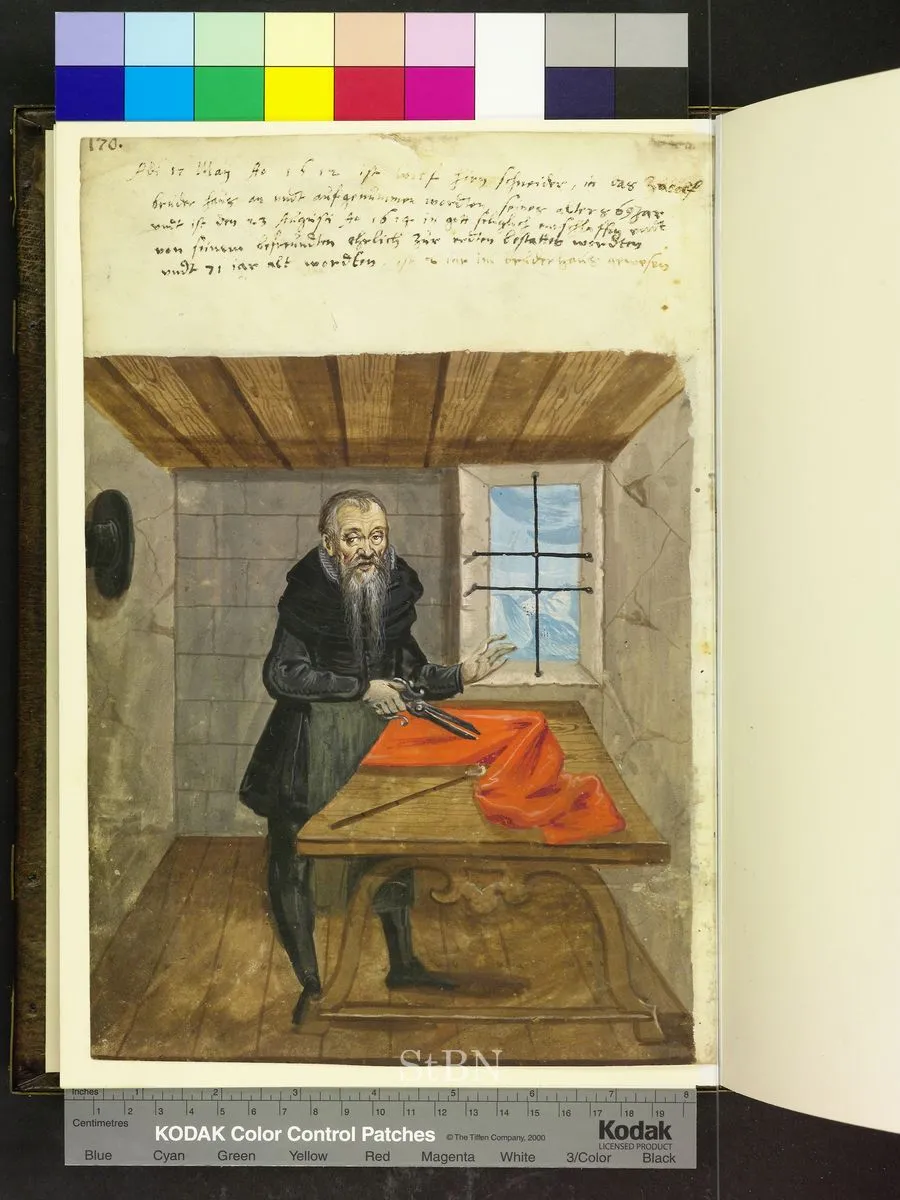 170.
Adi 17 May Ao 1612 ist Wolf Horn schneider, in das Zwölf
brüder hauß an undt aufgenummen wordten, seines alters 69 Jar
undt ist den 23 Augusti Ao 1614 in gott seliglich entschlaffen undt
von seinem befreundten ehrlich zur erdten bestattet wordten
undt 71 iar alt wordten, ist 2 iar im brüderhauß gewesen
StBN
inches 1 2 3 4 5 6 7 8
1 2 3 4 5 6 7 8 9 10 11 12 13 14 15 16 17 18 19
Centimetres
KODAK Color Control Patches © The Tiffen Company, 2000 Kodak
LICENSED PRODUCT
Blue Cyan Green Yellow Red Magenta White 3/Color Black